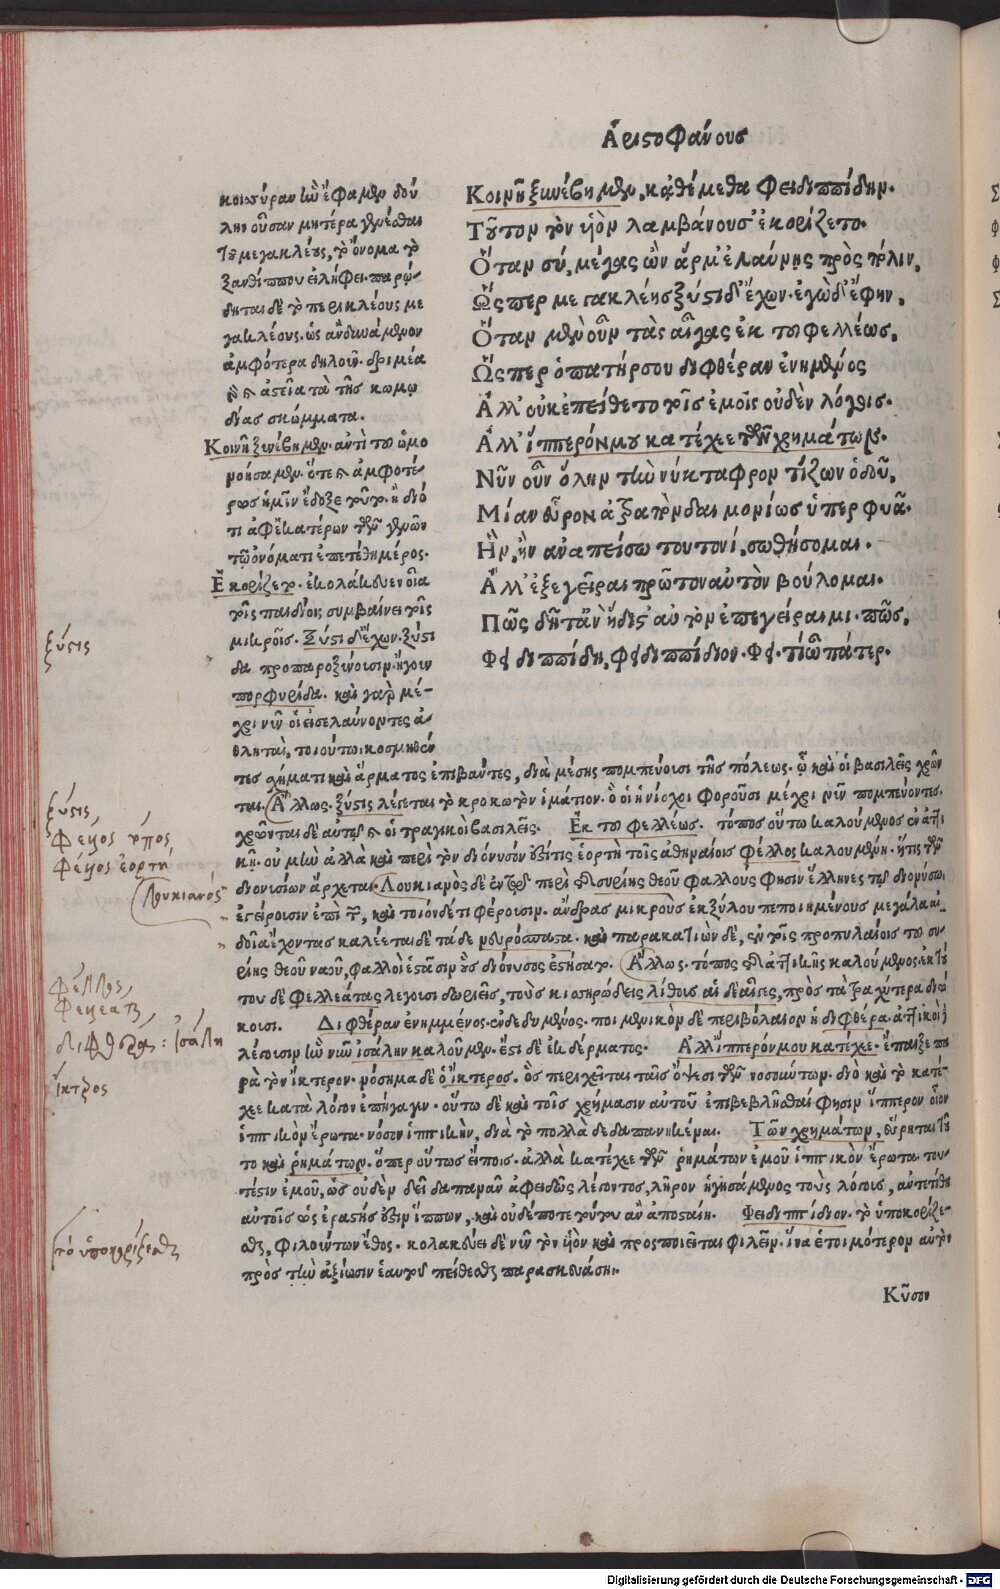 Ἀριστοφάνους
Κοινῇ ξυνέβημεν, κἀθέμεθα Φειδιππίδην.
Τοῦτον τὸν υἱὸν λαμβάνουσ' ἐκορίζετο.
Ὅταν σύ, μέγας ὢν ἅρμ' ἐλαύνῃς πρὸς πόλιν,
Ὥσπερ μεγακλέης ξύστιδ' ἔχων. ἐγὼ δ' ἔφην,
Ὅταν μὲν οὖν τὰς αἶγας ἐκ τοῦ φελλέως,
Ὥσπερ ὁ πατήρ σου διφθέραν ἐνημμένος
Ἀλλ' οὐκ ἐπείθετο τοῖς ἐμοῖς οὐδὲν λόγοις.
Ἀλλ' ἵππερόν μου κατέχεε τῶν χρημάτων.
Νῦν οὖν ὅλην τὴν νύκτα φροντίζων ὁδοῦ,
Μίαν εὗρον ἀτραπὸν δαιμονίως ὑπερφυᾶ.
Ἣν, ἢν ἀναπείσω τουτονί, σωθήσομαι.
Ἀλλ' ἐξεγεῖραι πρῶτον αὐτὸν βούλομαι.
Πῶς δῆτ' ἂν ἥδιστ' αὐτὸν ἐπεγείραιμι. πῶς,
Φειδιππίδη, φειδιππίδιον. Φει. τί ὦ πάτερ.
κοισύραν ἣν ἔφαμεν δού
λην οὖσαν μητέρα γενέσθαι
τοῦ μεγακλέους, τὸ ὄνομα τὸ
ξανθίππου εἰλήφει. παρῴ-
δηται δὲ τὸ περικλέους με
γακλέους. ὡς ἂν δυνάμενον
ἀμφότερα δηλοῦν. δριμέα
δὲ καὶ ἀστεῖα τὰ τῆς κωμῳ
δίας σκώμματα.
Κοινῇ ξυνέβημεν. ἀντὶ τοῦ ὡμο
νοήσαμεν. ὅτε καὶ ἀμφοτέ-
ροις ἡμῖν ἔδοξε τοῦτο. ἢ διό
τι ἀφ' ἑκατέρων τῶν γενῶν
τῷ ὀνόματι ἐπετέθη μέρος.
Ἐκορίζετο. ἐκολάκευεν οἷα
τοῖς παιδίοις συμβαίνει τοῖς
μικροῖς. Ξύστιδ' ἔχων. ξύστι
δα προπαροξύνουσιν. ἤγουν
πορφυρίδα. καὶ γὰρ μέ-
χρι νῦν οἱ εἰσελαύνοντες ἀ-
θληταὶ, τοιούτῳ κοσμηθέν
τες σχήματι καὶ ἅρματος ἐπιβάντες, διὰ μέσης πομπεύουσι τῆς πόλεως. ᾧ καὶ οἱ βασιλεῖς χρῶν
ται. Ἄλλως. ξύστις λέγεται τὸ κροκωτὸν ἱμάτιον. ὃ οἱ ἡνίοχοι φοροῦσι μέχρι νῦν πομπεύοντες.
χρῶνται δὲ αὐτῷ καὶ οἱ τραγικοὶ βασιλεῖς. Ἐκ τοῦ φελλέως. τόπος οὕτω καλούμενος ἐν ἀττι
κῇ. οὐ μὴν ἀλλὰ καὶ περὶ τὸν διόνυσόν ἐστί τις ἑορτὴ τοῖς ἀθηναίοις φέλλος καλουμένη. ἥτις τῶν
διονυσίων ἄρχεται. Λουκιανὸς δὲ ἐν τῷ περὶ ἀσυρίης θεοῦ φαλλούς φησιν ἕλληνες τῷ διονύσῳ
ἐγείρουσιν ἐπὶ τῷ, καὶ τοιόνδε τι φέρουσιν. ἄνδρας μικροὺς ἐκ ξύλου πεποιημένους μεγάλα αἰ-
δοῖα ἔχοντας καλέεται δὲ τάδε νευρόσπαστα. καὶ παρακατιὼν δὲ, ἐν τοῖς προπυλαίοις τοῦ συ-
ρίης θεοῦ ναοῦ, φαλλοὶ ἑστᾶσιν οὓς διόνυσος ἐστήσατο. Ἄλλως. τόπος ἀττικῆς καλούμενος. ἐκ τού
του δὲ φελλεάτας λέγουσι δωριεῖς, τοὺς κισηρώδεις λίθους αἱ δὲ αἶγες, πρὸς τὰ τραχύτερα διώ
κουσι. Διφθέραν ἐνημμένος. ἐνδεδυμένος. ποιμενικὸν δὲ περιβόλαιον ἡ διφθέρα. ἀττικοὶ
λέγουσιν ἣν νῦν ἰσάλην καλοῦμεν. ἔστι δὲ ἐκ δέρματος. Ἀλλ' ἵππερόν μου κατέχε. ἔπαιξε πα
ρὰ τὸν ἴκτερον. νόσημα δὲ ὁ ἴκτερος. ὃς περιχεῖται ταῖς ὄψεσι τῶν νοσούντων. διὸ καὶ τὸ κατέ-
χεε κατὰ λόγον ἐπήγαγεν. οὕτω δὲ καὶ τοῖς χρήμασιν αὐτοῦ ἐπιβεβλῆσθαι φησιν ἵππερον οἷον
ἱππικὸν ἔρωτα. νόσον ἱππικὴν, διὰ τὸ πολλὰ δεδαπανηκέναι. Τῶν χρημάτων, εὕρηται τοῦ
το καὶ ῥημάτων. ὅπερ οὕτως εἴποις. ἀλλὰ κατέχεε τῶν ῥημάτων ἐμοῦ ἱππικὸν ἔρωτα. του-
τέστιν ἐμοῦ, ὡς οὐδὲν δεῖ δαπανᾶν ἀφειδῶς λέγοντος, λῆρον ἡγησάμενος τοὺς λόγους, ἀντετίθει
αὐτοῖς ὡς ἐραστής ἐστιν ἵππων, καὶ οὐδέποτε τούτου ἂν ἀποσταίη. Φειδιππίδιον. τὸ ὑποκορίζε-
σθαι, φιλούντων ἔθος. κολακεύει δὲ νῦν τὸν υἱὸν καὶ προσποιεῖται φιλεῖν. ἵνα ἑτοιμότερον αὐτὸν
πρὸς τὴν ἀξίωσιν ἑαυτοῦ πείθεσθαι παρασκευάσῃ.
Κῦσον
ξύστις
ξύστις
Φελλος τόπος
Φέλλος ἑορτή
Λουκιανός
Φέλλος,
Φελλεατ
διφθέρα : ἰσάλη
ἴκτερος
τὸ ὑποκορίζεσθαι
Digitalisierung gefördert durch die Deutsche Forschungsgemeinschaft - DFG